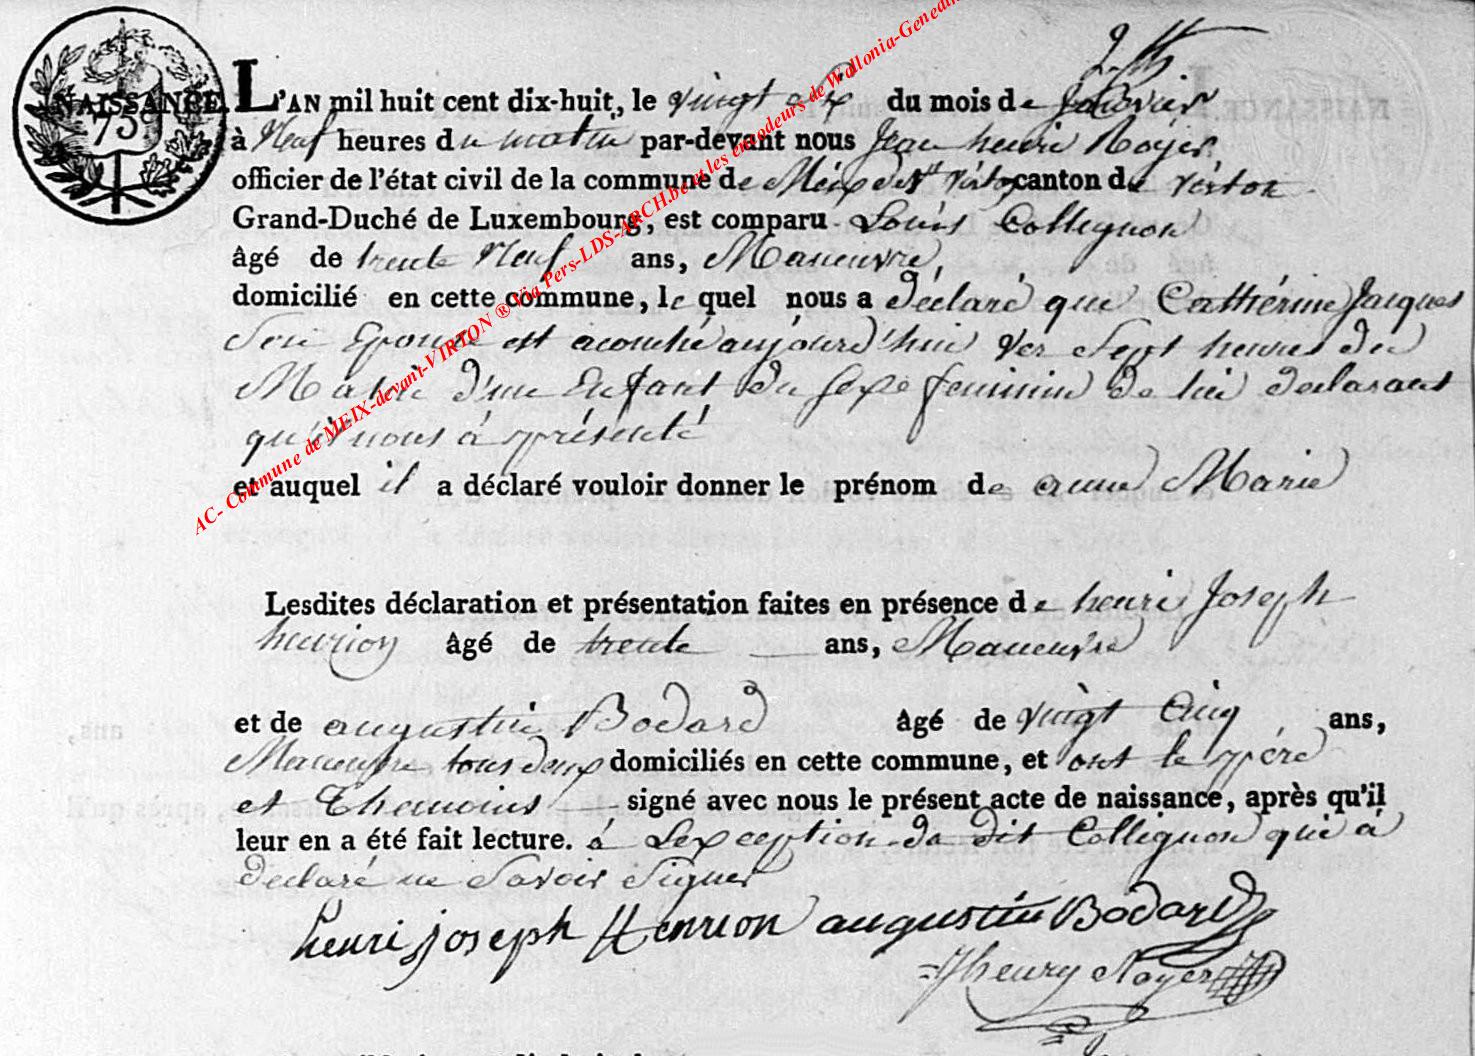 NAISSANCE.
75
L'AN mil huit cent dix-huit, le vingt six du mois de Janvier
à Neuf heures du matin par-devant nous Jean henri Noyer,
officier de l'état civil de la commune de Meix devt virton canton de virton
Grand-Duché de Luxembourg, est comparu Louis Collignon
âgé de trente Neuf ans, Maneuvre,
domicilié en cette commune, le quel nous a déclaré que Cathérine Jacques
Son Epouse est acouché aujourd'hui ver Sept heures du
Matin d'un Enfant du sexe feminin de lui declarant
qu'il nous à présenté
et auquel il a déclaré vouloir donner le prénom de anne Marie
Lesdites déclaration et présentation faites en présence de henri Joseph
henrion âgé de trente ans, Maneuvre
et de augustin Bodard âgé de vingt Cinq ans,
Maneuvre tous deux domiciliés en cette commune, et ont le père
et Themoins signé avec nous le présent acte de naissance, après qu'il
leur en a été fait lecture. à Lexception du dit Collignon qui à
declaré ne Savoir Signer
henri joseph Henrion augustin Bodard
Jhenry Noyer
AC- Commune de MEIX-devant-VIRTON ® Via Pers-LDS-ARCH.be et les encodeurs de Wallonia-Genedin